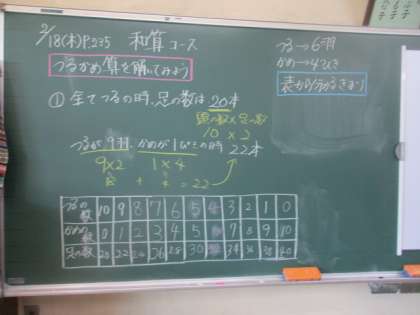 2/18(木)P.235 和算コース
つるかめ算を解いてみよう
つる→6羽
かめ→4ひき
表から分かるきまり
① 全てつるの時、足の数は20本
頭の数×足の数
10×2
つるが9羽、かめが1ぴきの時 22本
9×2 1×4
+ 4 = 22
つるの数 10 9 8 7 6 5 4 3 2 1 0
かめの数 0 1 2 3 4 5 7 8 9 10
足の数 20 22 24 26 28 30 34 36 38 40